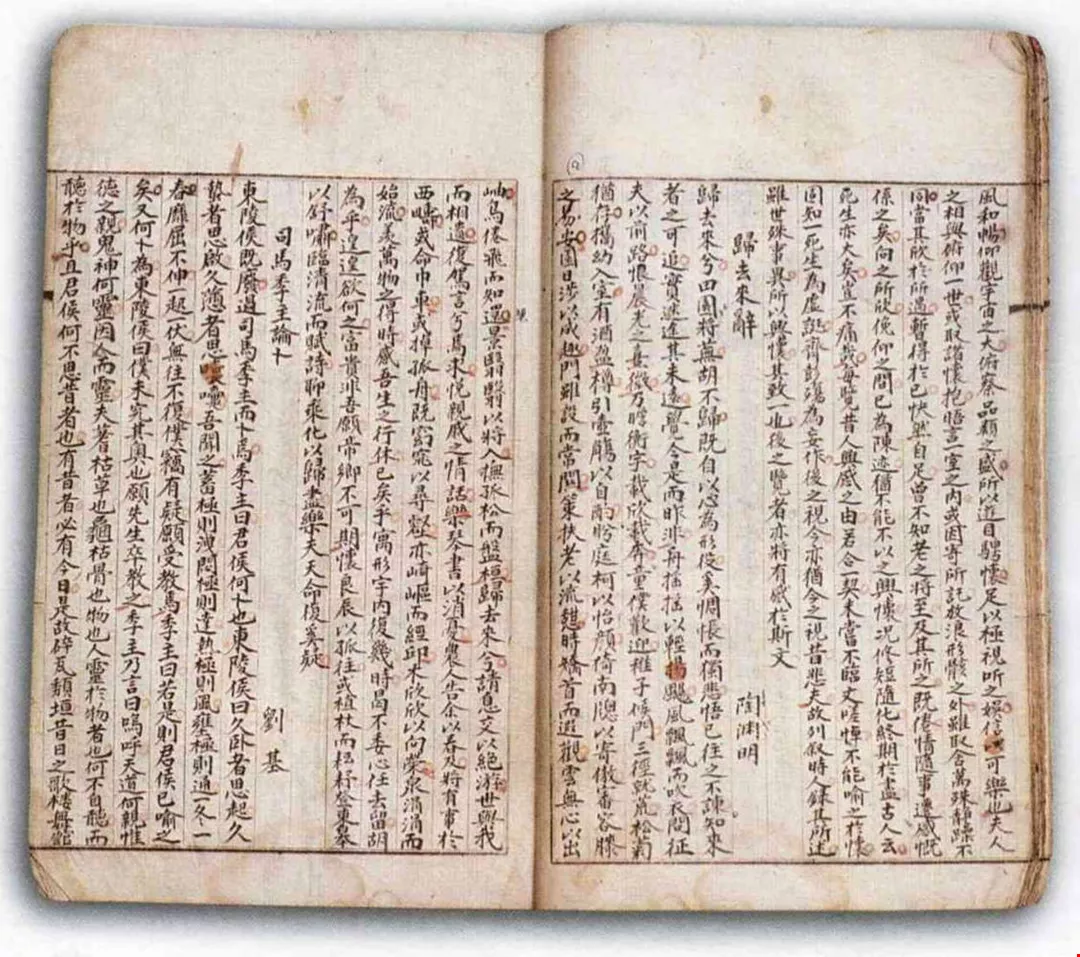 風和暢仰觀宇宙之大俯察品類之盛所以遊目騁懷足以極視聽之娛信可樂也夫人
之相與俯仰一世或取諸懷抱悟言一室之內或因寄所託放浪形骸之外雖取舍萬殊靜躁不
同當其欣於所遇暫得於己快然自足曾不知老之將至及其所之既倦情隨事遷感慨
係之矣向之所欣俛仰之間已為陳迹猶不能不以之興懷況修短隨化終期於盡古人云
死生亦大矣豈不痛哉每覽昔人興感之由若合一契未嘗不臨文嗟悼不能喻之於懷
固知一死生為虛誕齊彭殤為妄作後之視今亦猶今之視昔悲夫故列敘時人錄其所述
雖世殊事異所以興懷其致一也後之覽者亦將有感於斯文
歸去來辭 陶淵明
歸去來兮田園將蕪胡不歸既自以心為形役奚惆悵而獨悲悟已往之不諫知來
者之可追實迷途其未遠覺今是而昨非舟搖搖以輕颺風飄飄而吹衣問征
夫以前路恨晨光之熹微乃瞻衡宇載欣載奔童僕歡迎稚子候門三徑就荒松菊
猶存攜幼入室有酒盈樽引壺觴以自酌眄庭柯以怡顏倚南牕以寄傲審容膝
之易安園日涉以成趣門雖設而常關策扶老以流憩時矯首而遐觀雲無心以出
岫鳥倦飛而知還景翳翳以將入撫孤松而盤桓歸去來兮請息交以絕游世與我
而相遺復駕言兮焉求悅親戚之情話樂琴書以消憂農人告余以春及將有事於
西疇或命巾車或掉孤舟既窈窕以尋壑亦崎嶇而經邱木欣欣以向榮泉涓涓而
始流羨萬物之得時感吾生之行休已矣乎寓形宇內復幾時曷不委心任去留胡
為乎遑遑欲何之富貴非吾願帝鄉不可期懷良辰以孤往或植杖而耘耔登東皋
以舒嘯臨清流而賦詩聊乘化以歸盡樂夫天命復奚疑
司馬季主論卜 劉基
東陵侯既廢過司馬季主而卜焉季主曰君侯何卜也東陵侯曰久卧者思起久
蟄者思啟久懣者思嚏吾聞之蓄極則洩悶極則達熱極則風壅極則通一冬一
春靡屈不伸一起一伏無往不復僕竊有疑願受教焉季主曰若是則君侯已喻之
矣又何卜為東陵侯曰僕未究其奧也願先生卒教之季主乃言曰嗚呼天道何親惟
德之親鬼神何靈因人而靈夫蓍枯草也龜枯骨也物也人靈於物者也何不自聽而
聽於物乎且君侯何不思昔者也有昔者必有今日是故碎瓦頹垣昔日之歌樓舞館